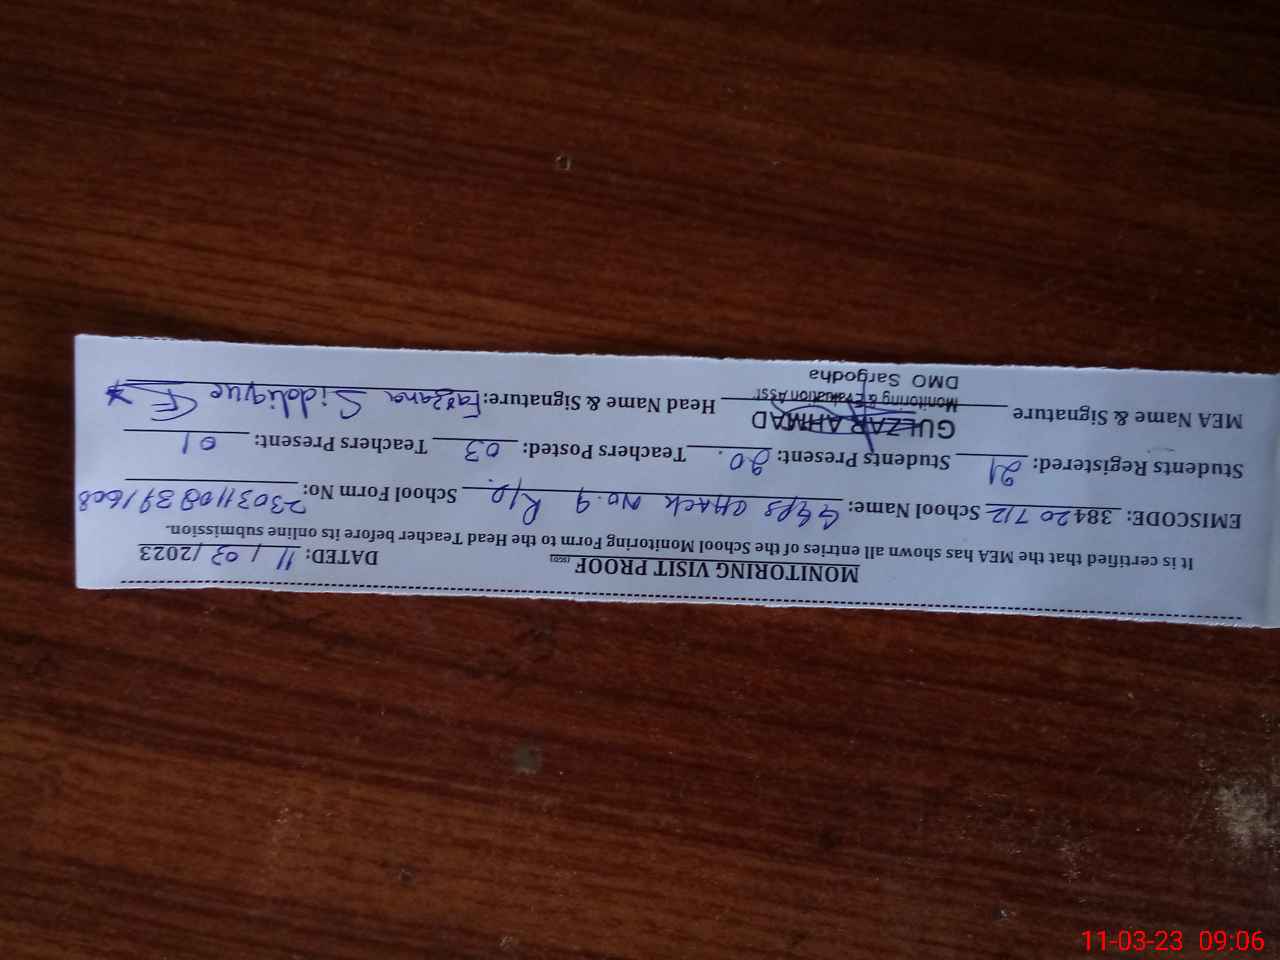 MONITORING VISIT PROOF DATED: 11 / 03 / 2023
It is certified that the MEA has shown all entries of the School Monitoring Form to the Head Teacher before its online submission.
EMISCODE: 38420712 School Name: GGPS chack No. 9 R/D. School Form No:
Students Registered: 21 Students Present: 20. Teachers Posted: 03 Teachers Present: 01
MEA Name & Signature GULZAR AHMAD Head Name & Signature: Farzana Siddique
Monitoring & Evaluation Asst
DMO Sargodha
11-03-23 09:06